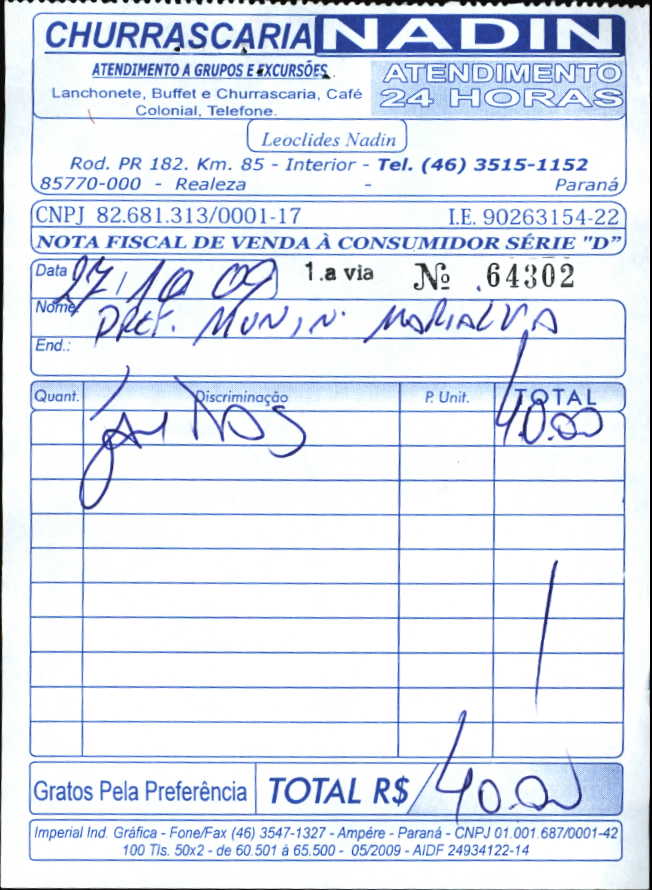 CHURRASCARIA NADIN
ATENDIMENTO A GRUPOS E EXCURSÕES
Lanchonete, Buffet e Churrascaria, Café
Colonial, Telefone.
ATENDIMENTO
24 HORAS
Leoclides Nadin
Rod. PR 182. Km. 85 - Interior - Tel. (46) 3515-1152
85770-000 - Realeza - Paraná
CNPJ 82.681.313/0001-17 I.E. 90263154-22
NOTA FISCAL DE VENDA À CONSUMIDOR SÉRIE "D"
Data 27/10/09 1.a via Nº 64302
Nome: PREF. MUNIN. MARIALVA
End.:
Quant. Discriminação P. Unit. TOTAL
Jantas 40.00
Gratos Pela Preferência TOTAL R$ 40.00
Imperial Ind. Gráfica - Fone/Fax (46) 3547-1327 - Ampére - Paraná - CNPJ 01.001.687/0001-42
100 Tls. 50x2 - de 60.501 à 65.500 - 05/2009 - AIDF 24934122-14